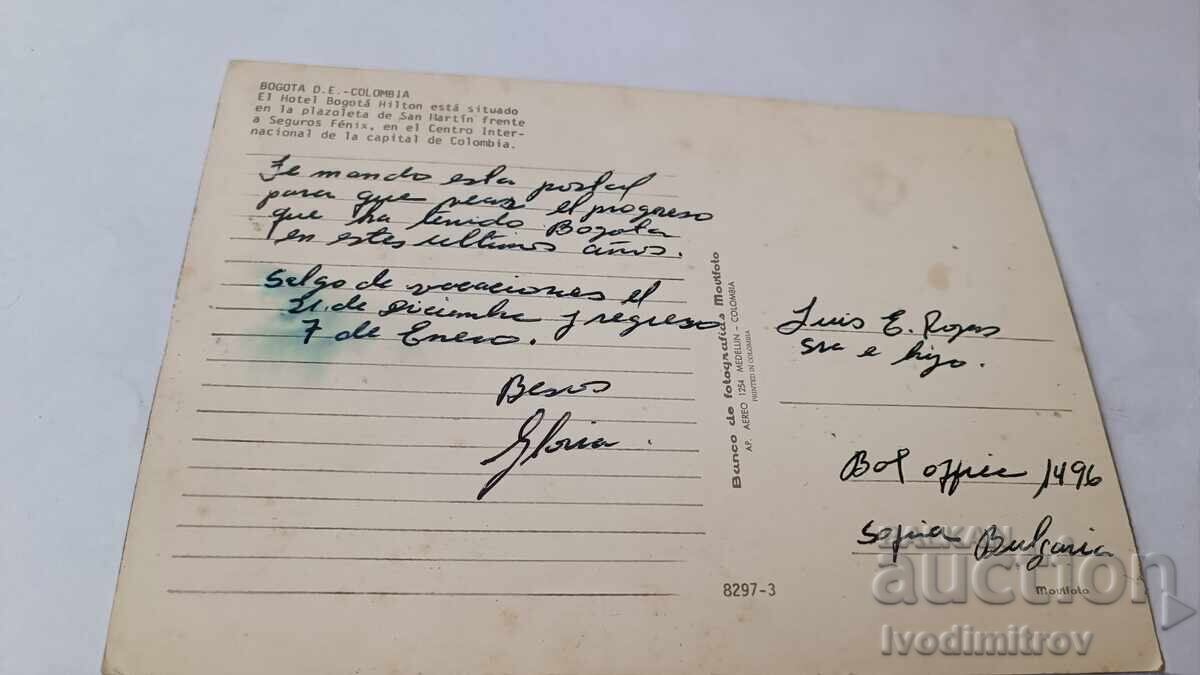 BOGOTA D.E.-COLOMBIA
El Hotel Bogotá Hilton está situado
en la plazoleta de San Martín frente
a Seguros Fénix, en el Centro Inter-
nacional de la capital de Colombia.
Te mando esta postal
para que veas el progreso
que ha tenido Bogota
en estes ultimos años.
Salgo de vacaciones el
21 de Diciembre y regreso
7 de Enero.
Besos
Gloria.
Banco de fotografías Movifoto
AP. AEREO 1254 MEDELLIN - COLOMBIA
PRINTED IN COLOMBIA
Luis E. Rojas
Sra e hijo.
Bot office 1496
Sofia Bulgaria
8297-3
Movifoto
BALKAN
auction
Ivodimitrov